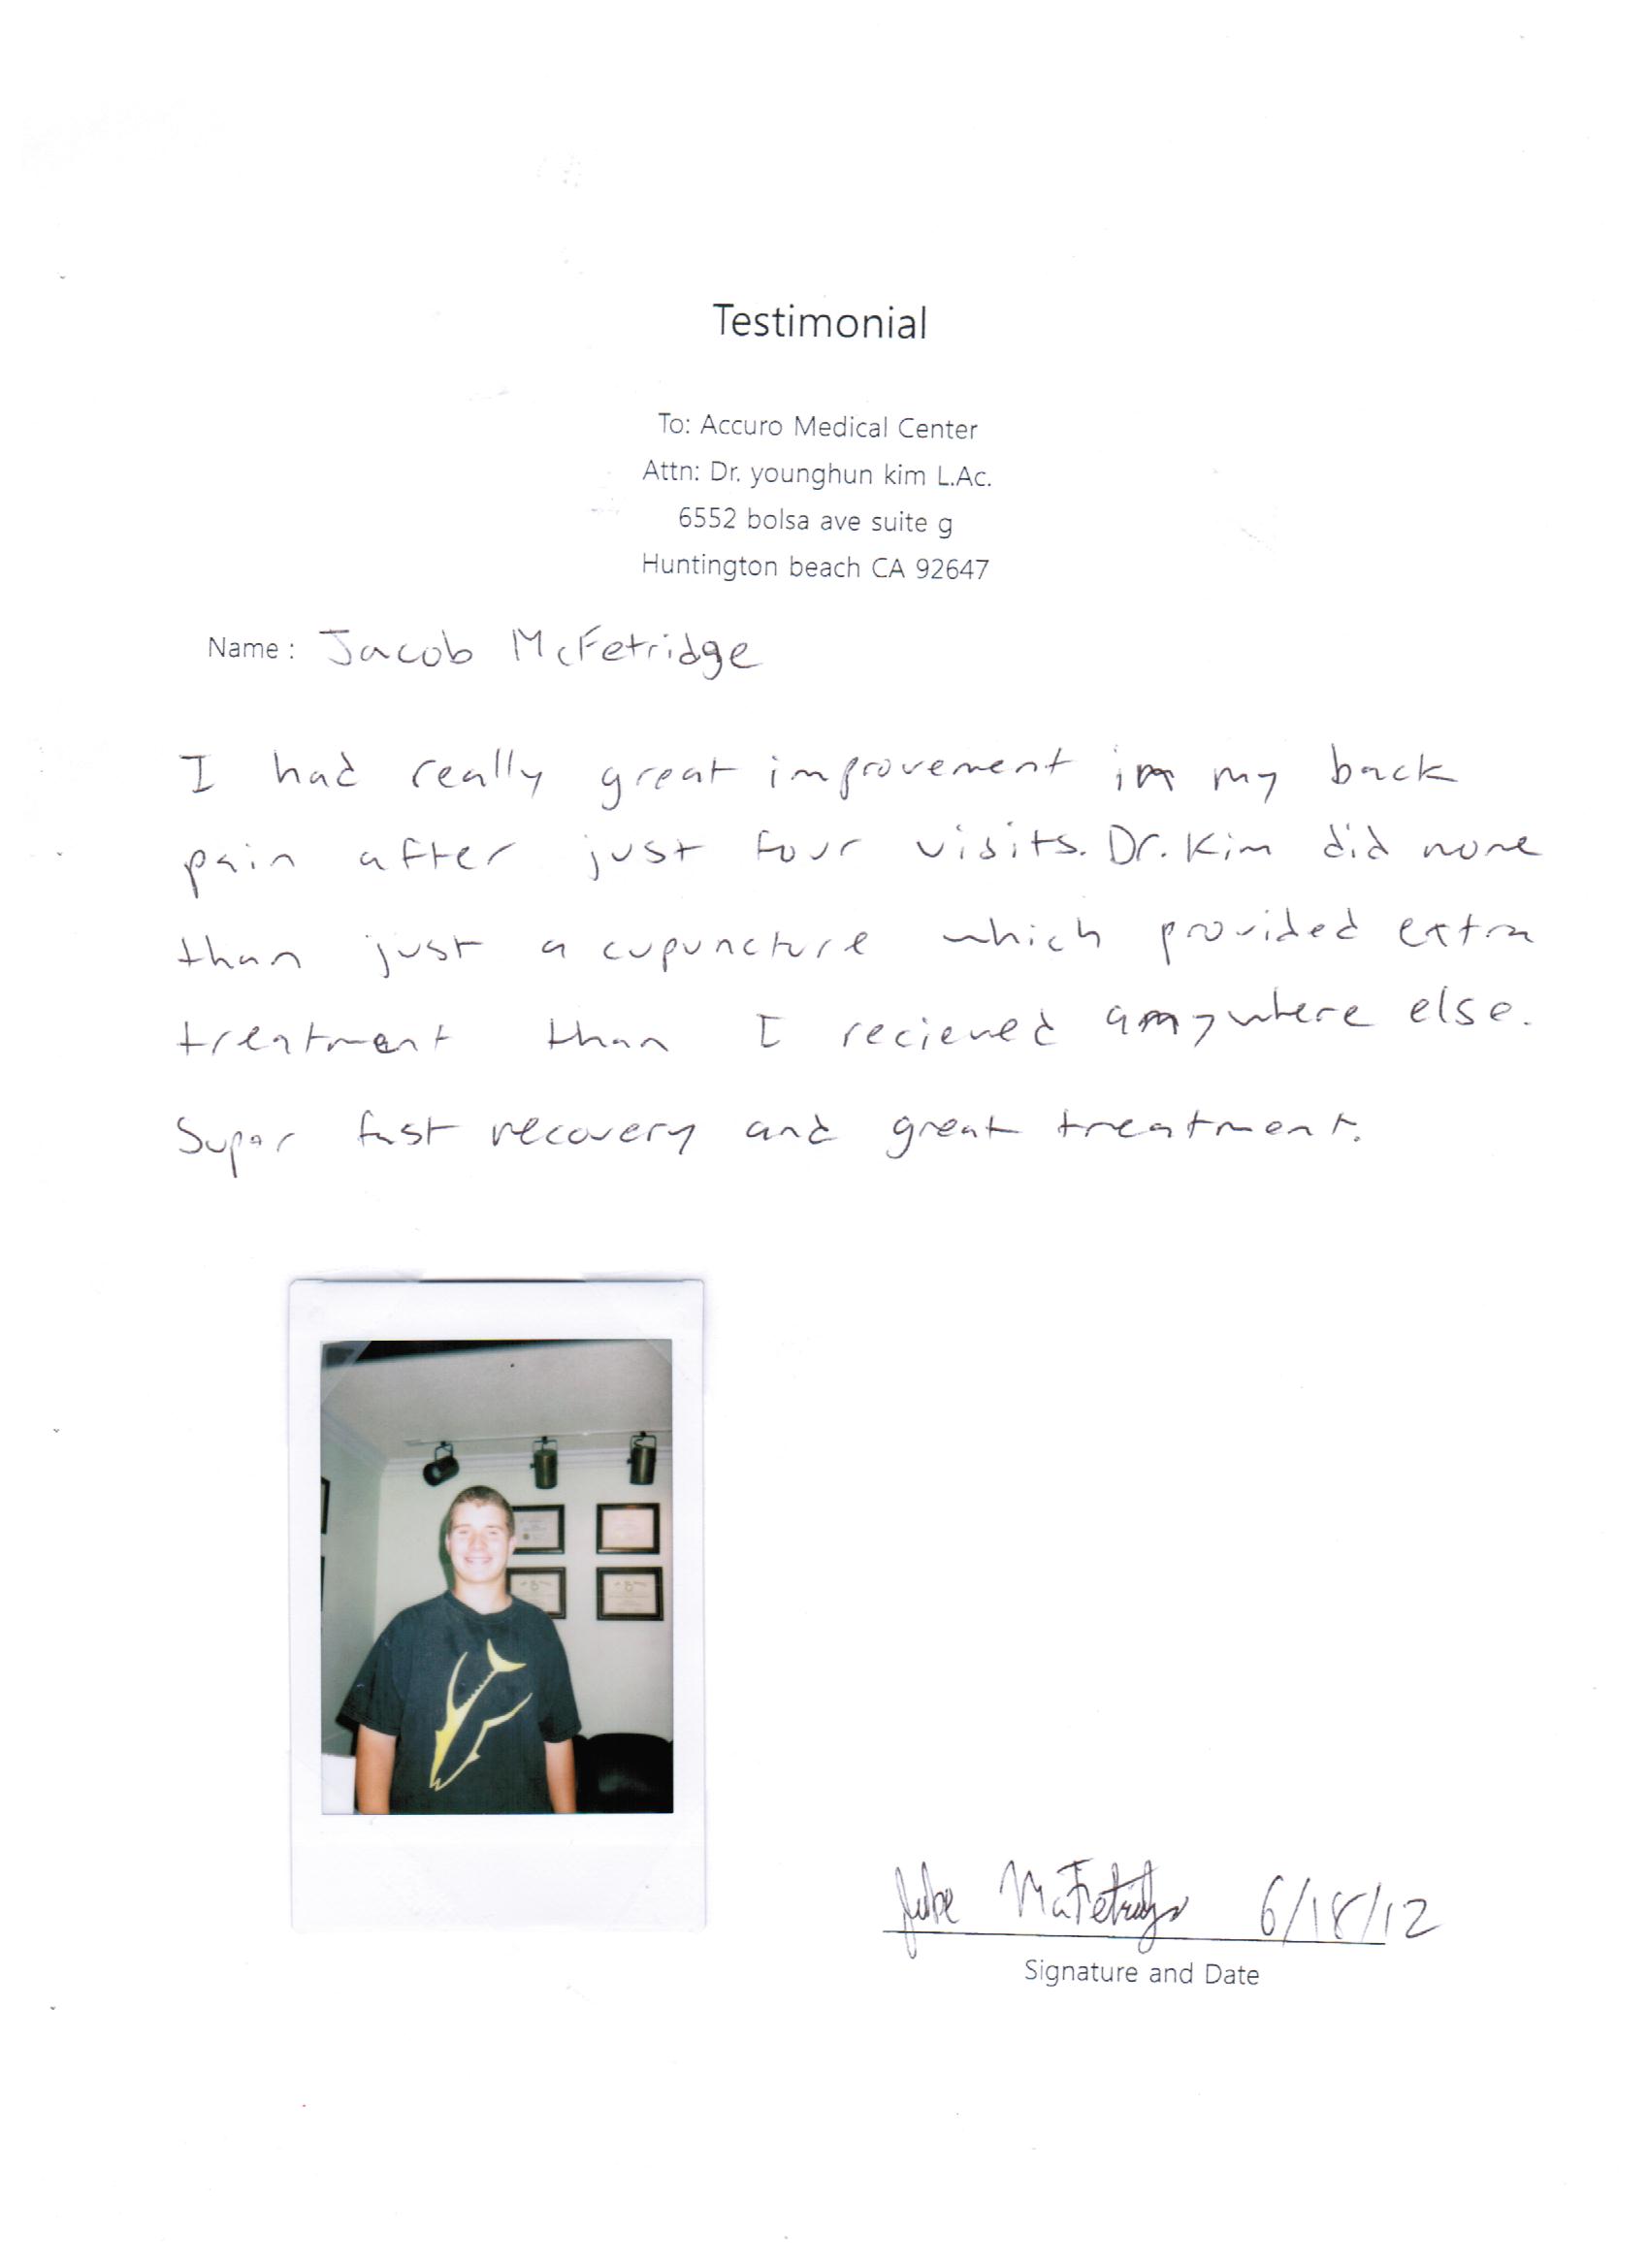 Testimonial
To: Accuro Medical Center
Attn: Dr. younghun kim L.Ac.
6552 bolsa ave suite g
Huntington beach CA 92647
Name : Jacob McFetridge
I had really great improvement in my back
pain after just four visits. Dr. Kim did more
than just acupuncture which provided extra
treatment than I recieved anywhere else.
Super fast recovery and great treatment.
Jake McFetridge 6/18/12
Signature and Date